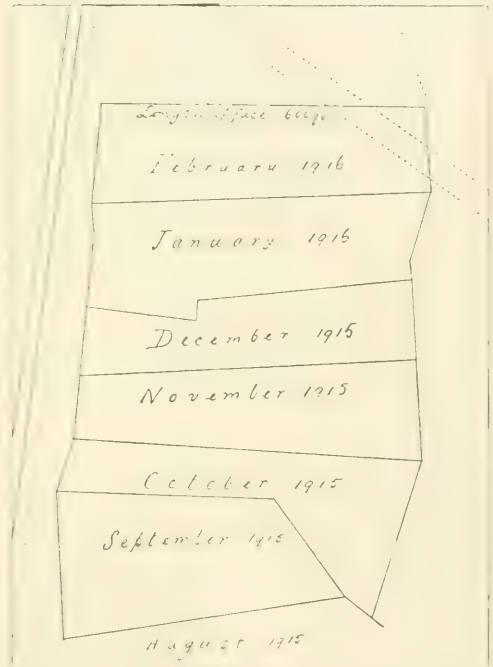 Length of face 600 ft.
February 1916
January 1916
December 1915
November 1915
October 1915
September 1915
August 1915